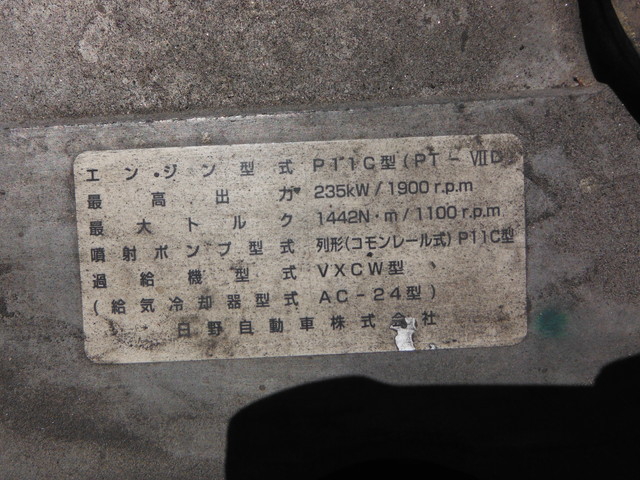 エンジン型式 P11C型(PT-VIID
最高出力 235kW/1900r.p.m
最大トルク 1442N・m/1100r.p.m
噴射ポンプ型式 列形(コモンレール式)P11C型
過給機型式 VXCW型
(給気冷却器型式 AC-24型)
日野自動車株式会社